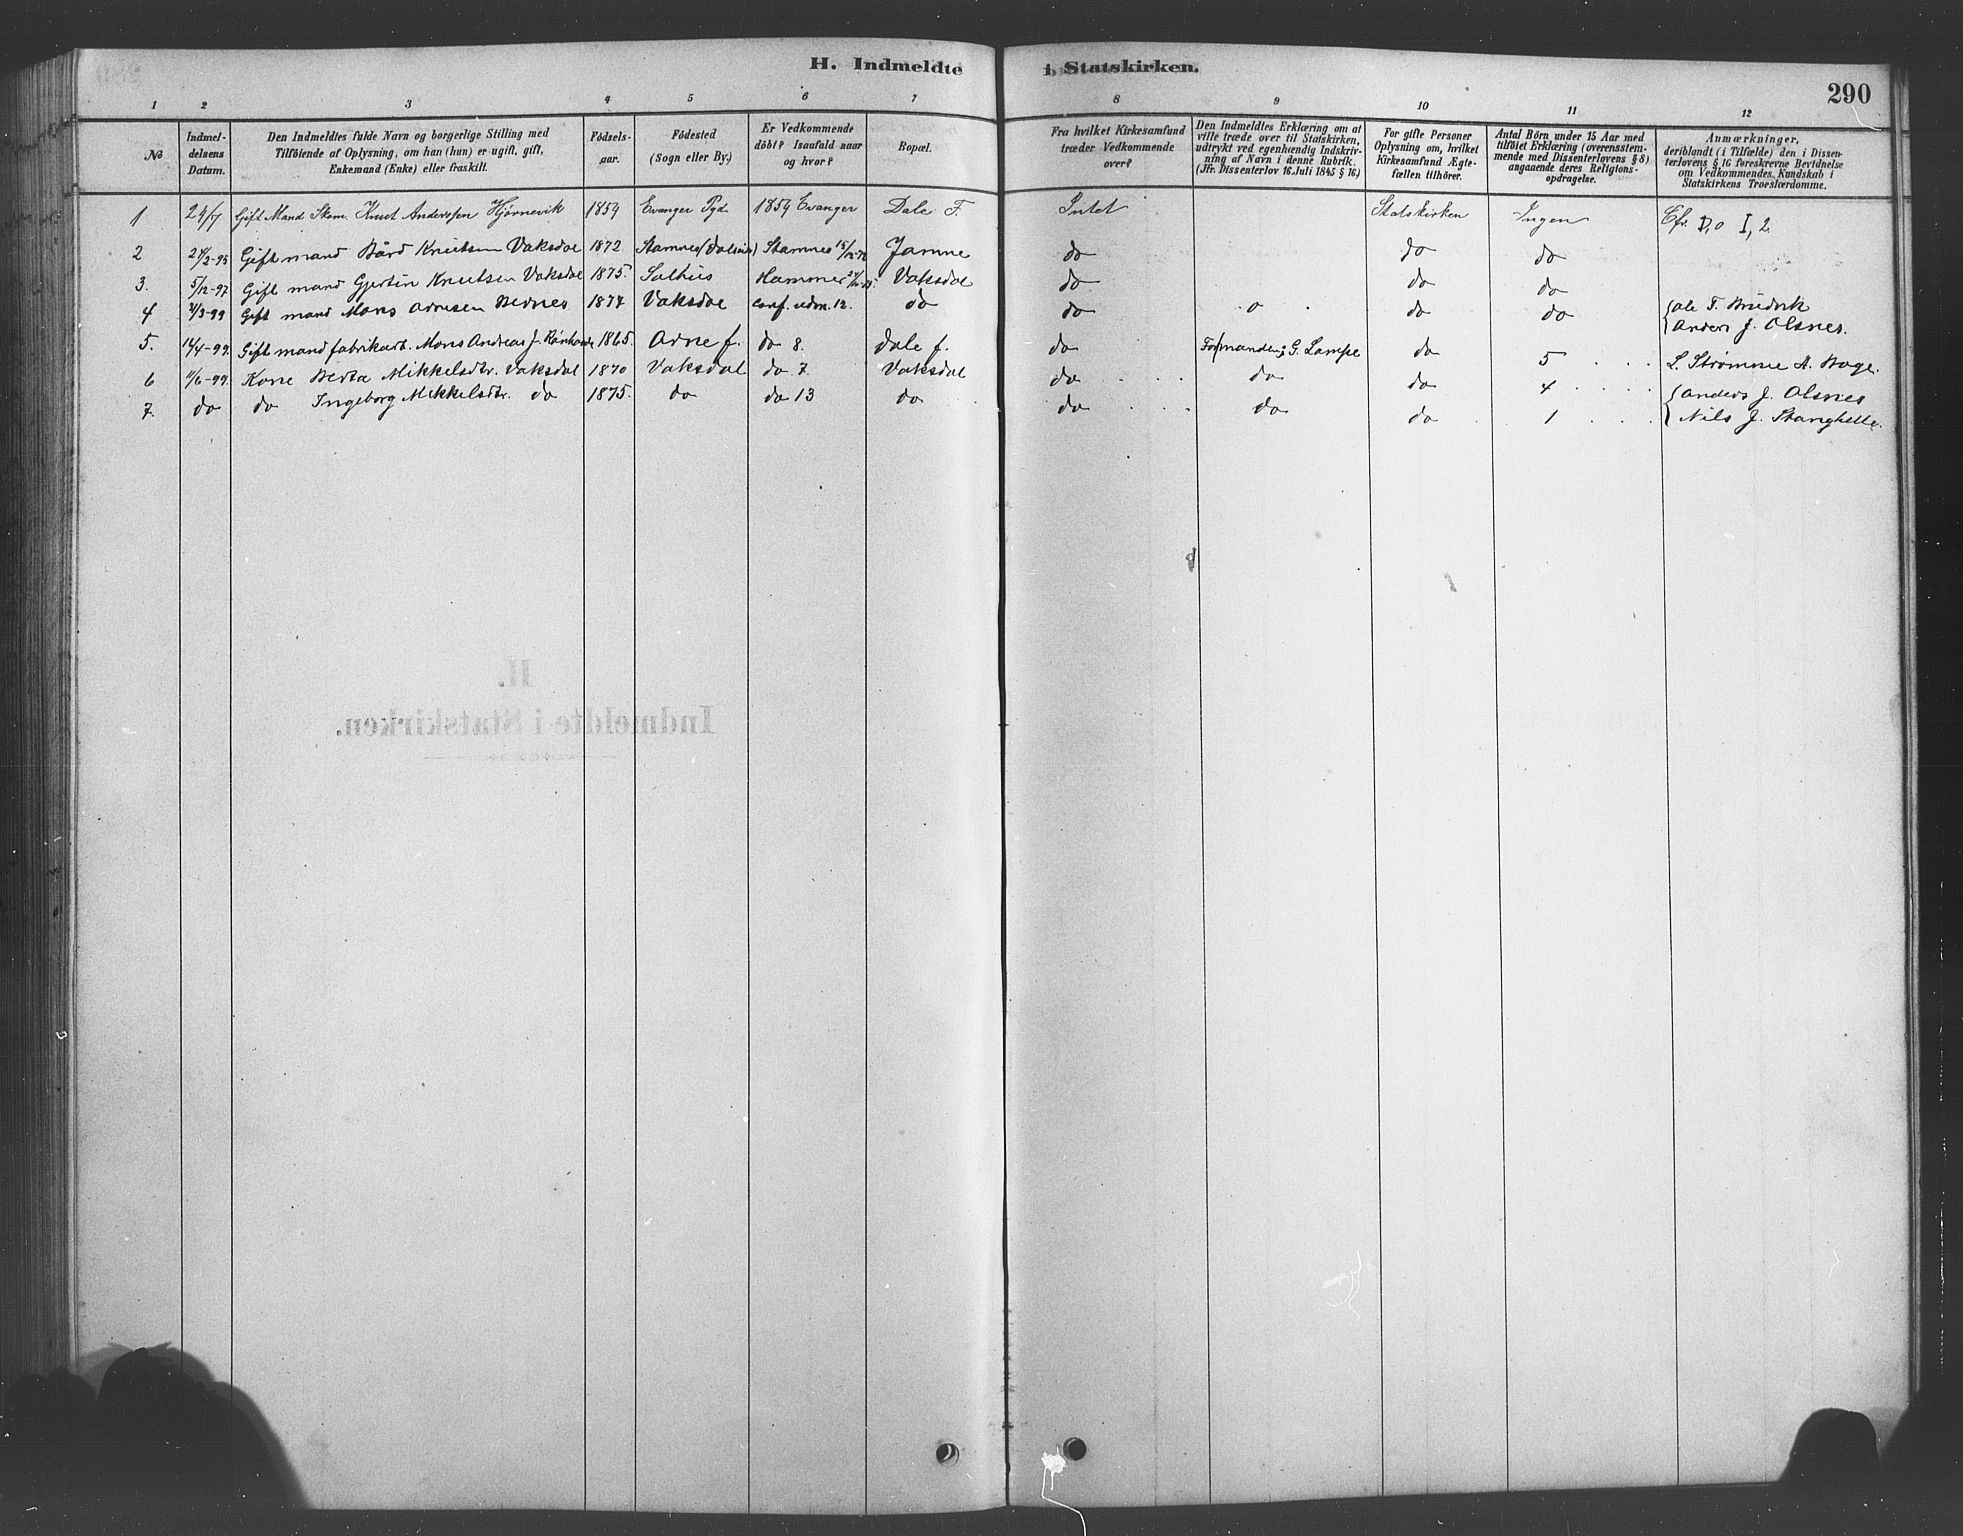 H. Indmeldte i Statskirken.
290
1 2 3 4 5 6 7 8 9 10 11 12
No
Indmel-
delsens
Datum.
Den Indmeldtes fulde Navn og borgerlige Stilling med
Tilföiende af Oplysning, om han (hun) er ugift, gift,
Enkemand (Enke) eller fraskilt.
Födsels-
aar.
Födested
(Sogn eller By.)
Er Vedkommende
döbt? Isaafald naar
og hvor?
Bopæl.
Fra hvilket Kirkesamfund
træder Vedkommende
over?
Den Indmeldtes Erklæring om at
ville træde over til Statskirken,
udtrykt ved egenhændig Indskriv-
ning af Navn i denne Rubrik.
(Jfr. Dissenterlov 16. Juli 1845 § 16)
For gifte Personer
Oplysning om, hvilket
Kirkesamfund Ægte-
fællen tilhörer.
Antal Börn under 15 Aar med
tilföiet Erklæring (overensstem-
mende med Dissenterlovens § 8)
angaaende deres Religions-
opdragelse.
Anmærkninger,
deriblandt (i Tilfælde) den i Dissen-
terlovens § 16 foreskrevne Bevidnelse
om Vedkommendes Kundskab i
Statskirkens Troeslærdomme.
1 24/7 Gift Mand Skom. Knut Anderssen Hjørnevik 1859 Evanger Pgd 1859 Evanger Dale F. Intet Statskirken Ingen Cfr. D, o I, 2
2 Gift mand Bård Knutsen Vaksdal 1872 Stamnes Stamnes 15/12-72 Jamne do do do
3. 5/12-97 Gift mand Gjertin Knutsen Vaksdal 1875. Salhus Hammer Vaksdal do do do
4 4/3-99 Gift mand Mons Arnesen Bernes 1877 Vaksdal conf. udm. 12. do do o do do { Ole T.
Anders J. Olsnes.
5. 14/4-99. Gift mand fabrikarb. Mons Andreas J. 1865. Arne f. do 8. Dale f. do Formanden: G. Lampe do 5 L. Strømme A. Boge.
6 11/6-99. Kone Berta Mikkelsdtr. Vaksdal 1870 Vaksdal do 7 Vaksdal do do do 4 { Anders J. Olsnes
7. do do Ingeborg Mikkelsdtr. do 1875. do do 13 do do do do 1 Nils J. Stanghelle.
H.
Indmeldte i Statskirken.